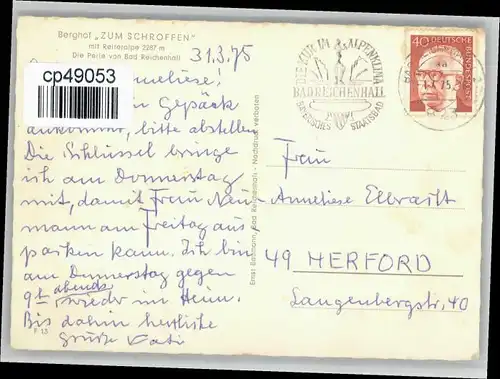 Berghof „ZUM SCHROFFEN"
mit Reiteralpe 2287 m
Die Perle von Bad Reichenhall
31.3.75
cp49053
nneliese!
n Gepäck
ankommt, bitte abstellen
Die Schlüssel bringe
ich am Donnerstag
mit, damit Frau Neu-
mann am Freitag aus
packen kann. Ich bin
am Donnerstag gegen
9h abends wieder im Heim.
Bis dahin herzliche
Grüße Vati
F 13
Ernst Baumann, Bad Reichenhall - Nachdruck verboten
DIE KUR IM ALPENKLIMA
BAD REICHENHALL
BAYERISCHES STAATSBAD
40 DEUTSCHE BUNDESPOST
Frau
Anneliese Elbracht
49 HERFORD
Langenbergstr. 40